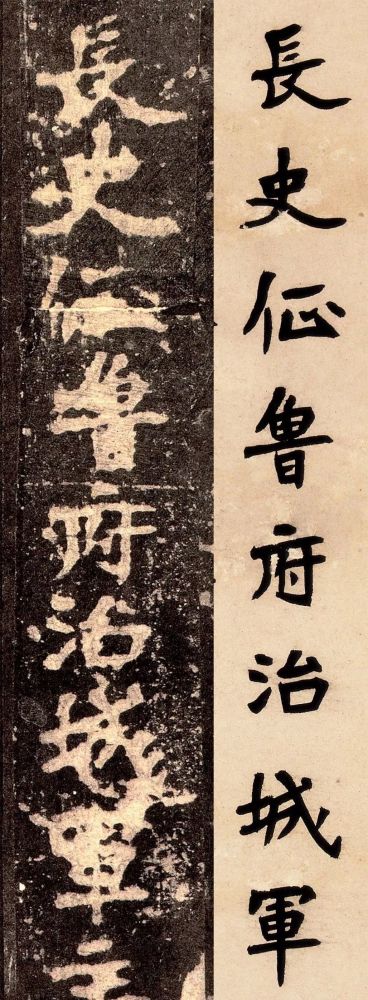 長史征魯府治城軍
長史征魯府治城軍主